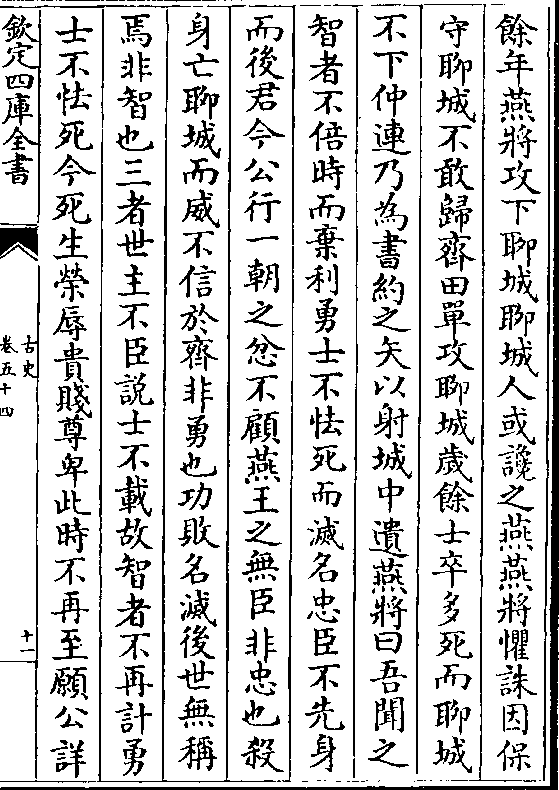 餘年燕將攻下聊城聊城人或讒之燕燕將懼誅因保
守聊城不敢歸齊田單攻聊城歲餘士卒多死而聊城
不下仲連乃為書約之矢以射城中遺燕將曰吾聞之
智者不倍時而棄利勇士不怯死而滅名忠臣不先身
而後君今公行一朝之忿不顧燕王之無臣非忠也殺
身亡聊城而威不信於齊非勇也功敗名滅後世無稱
焉非智也三者世主不臣說士不載故智者不再計勇
士不怯死今死生榮辱貴賤尊卑此時不再至願公詳
欽定四庫全書
古史
卷五十四
十一